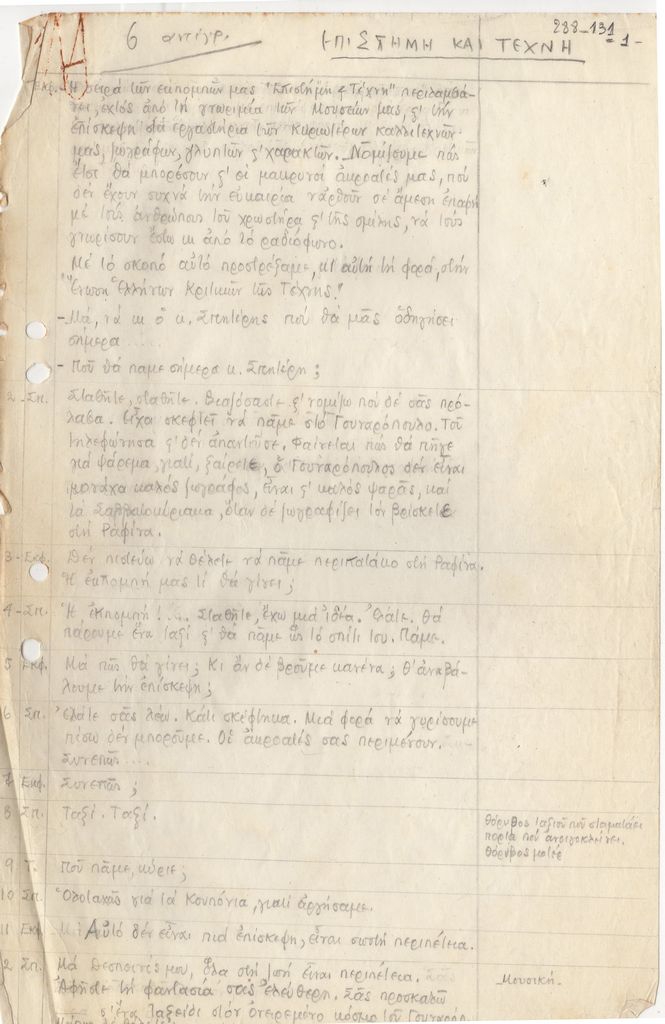 288-131
-1-
6 αντίγρ.
ΕΠΙΣΤΗΜΗ ΚΑΙ ΤΕΧΝΗ
Εκφ.- Ἡ σειρά τῶν ἐκπομπῶν μας "Ἐπιστήμη & Τέχνη" περιλαμβά-
νει, ἐκτός ἀπό τή γνωριμία τῶν Μουσείων μας, ϗ τήν
ἐπίσκεψη στά ἐργαστήρια τῶν κυριωτέρων καλλιτεχνῶν
μας, ζωγράφων, γλυπτῶν ϗ χαρακτῶν. Νομίζουμε πώς
ἔτσι θά μπορέσουν ϗ οἱ μακρυνοί ἀκροατές μας, πού
δέν ἔχουν συχνά τήν εὐκαιρία νἄρθουν σέ ἄμεση ἐπαφή
μέ τούς ἀνθρώπους τοῦ χρωστήρα ϗ τῆς σμίλης, νά τούς
γνωρίσουν ἔστω κι ἀπό τό ραδιόφωνο.
Μέ τό σκοπό αὐτό προστρέξαμε, κι αὐτή τή φορά, στήν
"Ἕνωση Ἑλλήνων Κριτικῶν τῆς Τέχνης."
- Μά, νά κι ὁ κ. Σπητέρης πού θά μᾶς ὁδηγήσει
σήμερα .....
- Ποῦ θά πᾶμε σήμερα κ. Σπητέρη;
2 - Σπ. Σταθῆτε, σταθῆτε. Βιαζόσαστε ϗ νομίζω πού δέ σᾶς πρό-
λαβα. Εἶχα σκεφτεῖ νά πᾶμε στό Γουναρόπουλο. Τοῦ
τηλεφώνησα ϗ δέν ἀπαντοῦσε. Φαίνεται πώς θά πῆγε
γιά ψάρεμα, γιατί, ξαίρετε, ὁ Γουναρόπουλος δέν εἶναι
μονάχα καλός ζωγράφος, εἶναι ϗ καλός ψαρᾶς, καί
τά Σαββατοκύριακα, ὅταν δέ ζωγραφίζει τόν βρίσκετε
στή Ραφίνα.
3 - Εκφ. Δέν πιστεύω νά θέλετε νά πᾶμε περιπατάκο στή Ραφίνα.
Ἡ ἐκπομπή μας τί θά γίνει;
4 - Σπ. Ἡ ἐκπομπή!.... Σταθῆτε, ἔχω μιά ἰδέα. Ἐλᾶτε. Θά
πάρουμε ἕνα ταξί ϗ θά πᾶμε ὥς τό σπίτι του. Πάμε.
5 Εκφ. Μά πῶς θά γίνει; Κι ἄν δέ βροῦμε κανένα; Θ' ἀναβά-
λουμε τήν ἐπίσκεψη;
6 Σπ. Ἐλᾶτε σᾶς λέω. Κάτι σκέφθηκα. Μιά φορά νά γυρίσουμε
πίσω δέν μποροῦμε. Οἱ ἀκροατές σας περιμένουν.
Συνεπῶς ....
7 Εκφ. Συνεπῶς;
8 Σπ. Ταξί. Ταξί.
θόρυβος ταξιοῦ πού σταματάει
πόρτα πού ἀνοιγοκλείνει.
θόρυβος μοτέρ
9 Τ. Ποῦ πᾶμε, κύριε;
10 Σπ. Ὁλοταχῶς γιά τά Κουπόνια, γιατί ἀργήσαμε.
11 Εκφ. Αὐτό δέν εἶναι πιά ἐπίσκεψη, εἶναι σωστή περιπέτεια.
2 Σπ. Μά Δεσποινίς μου, ὅλα στή ζωή εἶναι περιπέτεια.
Μουσική.
Ἀφῆστε τή φαντασία σας ἐλεύθερη. Σᾶς προσκαλῶ
σ' ἕνα ταξείδι στόν ὀνειρεμένο κόσμο τοῦ Γουναρόπ.